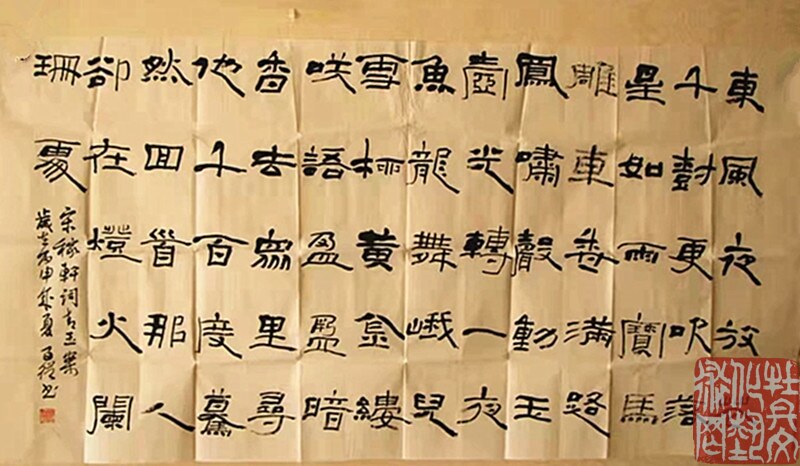 東風夜放
千樹更吹落
星如雨寶馬
雕車香滿路
鳳嘯聲動玉
壺光轉一夜
魚龍舞峨兒
雪柳黃金縷
咲語盈盈暗
香去眾里尋
他千百度驀
然回首那人
卻在燈火闌
珊處
宋稼軒詞青玉案
歲在丙申夏書